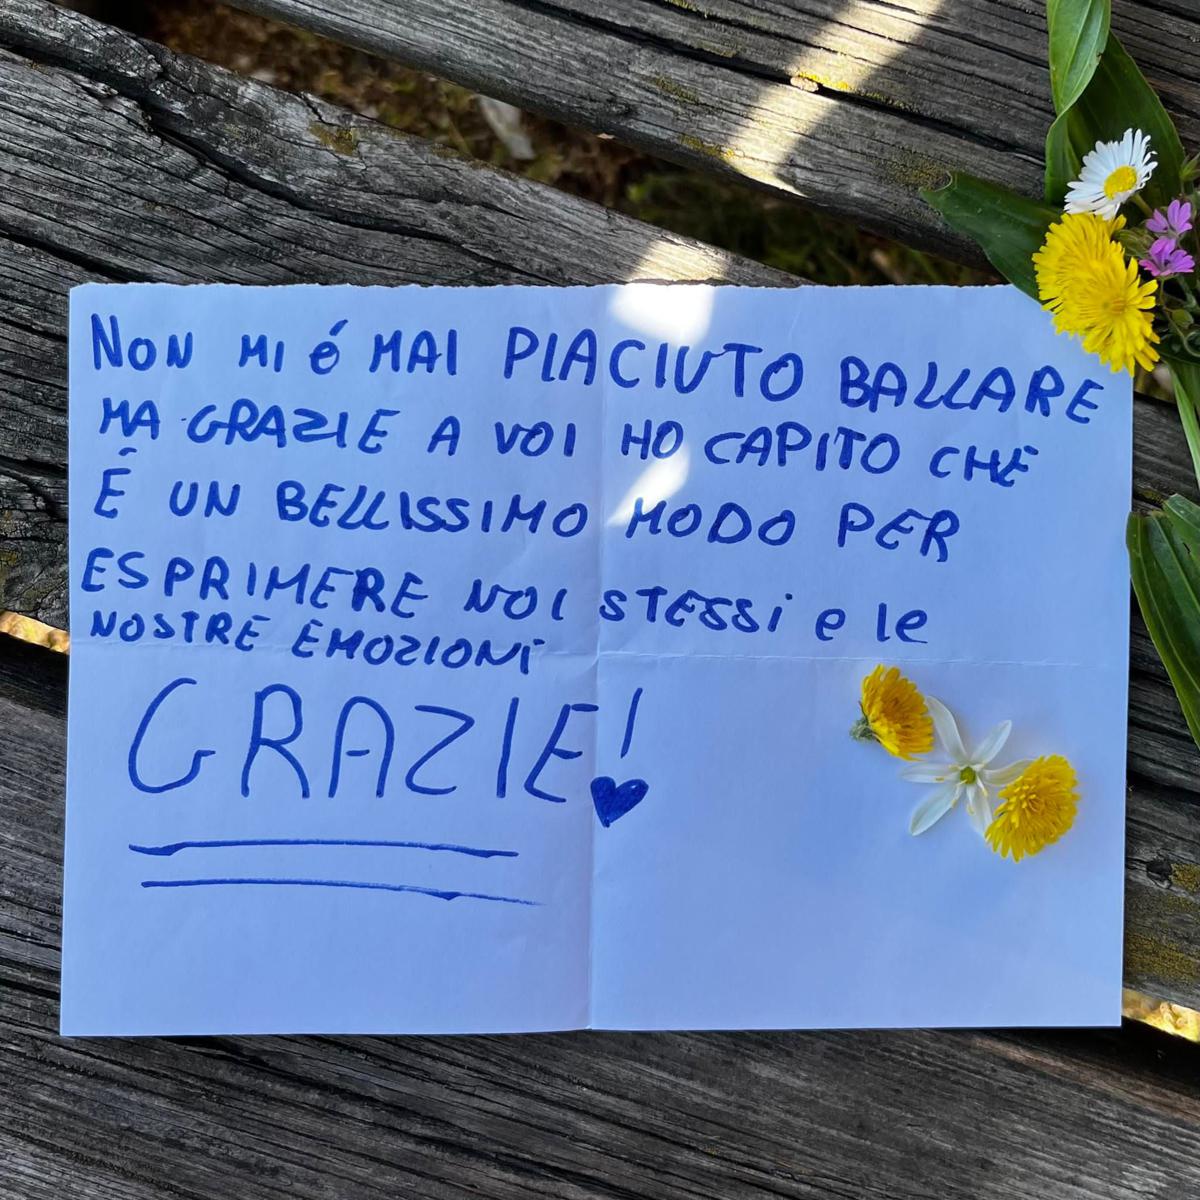 NON MI é MAI PIACIUTO BALLARE
MA GRAZIE A VOI HO CAPITO CHE
É UN BELLISSIMO MODO PER
ESPRIMERE NOI STESSi e le
NOSTRE EMOZIONi
GRAZIE!